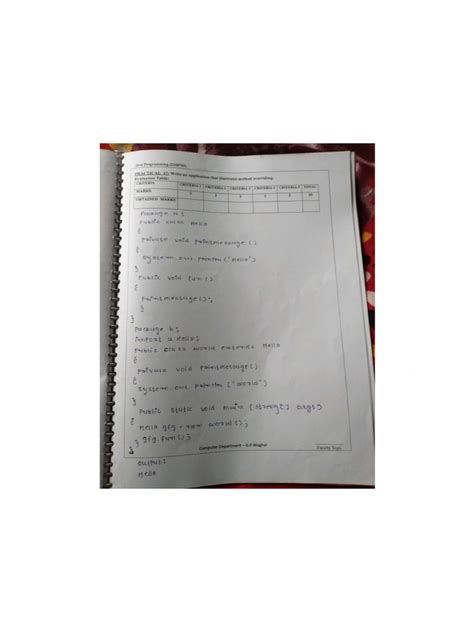 Java Programming
PRACTICAL 17: Write an application that illustrates method overriding.
Evaluation Table:
CRITERIA CRITERIA 1 CRITERIA 2 CRITERIA 3 CRITERIA 4 CRITERIA 5 TOTAL
MARKS 2 2 2 2 2 10
OBTAINED MARKS
Package a;
public class Hello
{
private void printmessage()
{
system.out.println("Hello")
}
public void fun()
{
printmessage();
}
}
Package b;
import a.Hello;
Public class world extends Hello
{
private void printmessage()
{
system.out.println("world")
}
Public static void main (string[] args)
{
Hello gfg = new world();
gfg.fun();
} }
}
Computer Department - G.P.Waghai
Faculty Sign.
output:
Hello